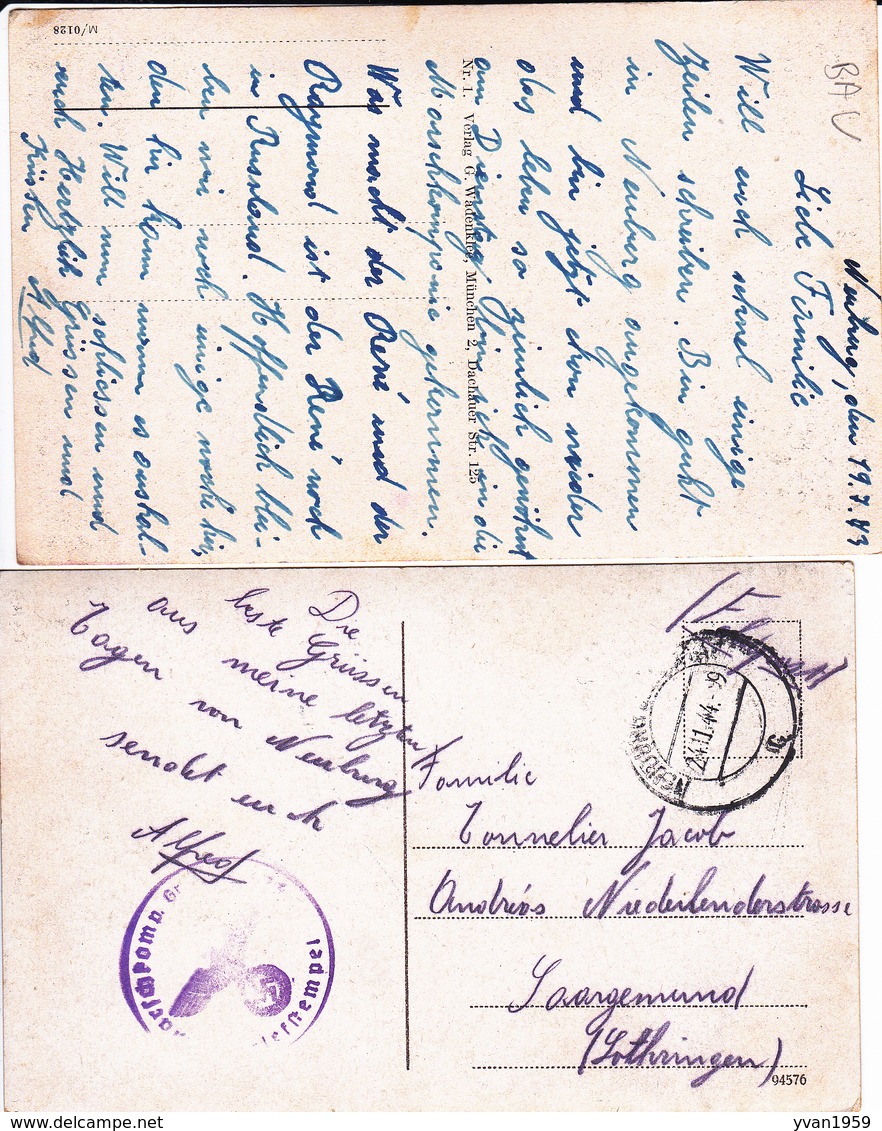 BAV
Neuburg, den 19.7.43
Liebe Familie
Will euch schnel einige
Zeilen schreiben. Bin gukt
in Neuburg angekommen
und bin jetzt schon wieder
das leben so zimlich gewöhnt
am Dienstag bin ich in die
Marschkompanie gekommen.
Was macht der René und der
Raymond ist der René noch
in Russland. Hoffentlich blei-
ben wir noch einige woche hir,
den hir kann mann es aushal-
ten. Will nun schliessen und
euch Hertzlich Grüssen und
Küssen Alfred
Nr. 1. Verlag G. Wadenklee, München 2, Dachauer Str. 125
M/0128
Die
beste Grüssen
aus meine letzten
Tagen von Neuburg
sendet euch
Alfred
Briefstempel
24.11.44.-99
Familie
Tonnelier Jacob
Andréas Niederlenderstrasse
Saargemund
(Lothringen)
94576
yvan1959